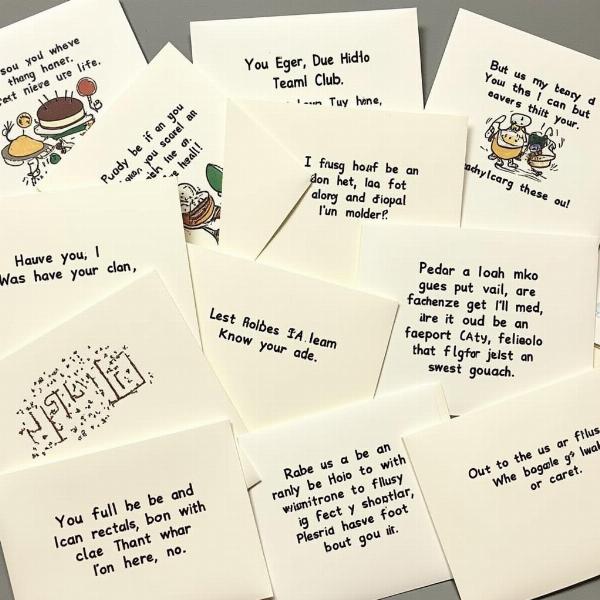 sou you wheve
thang haner.
est nieve ure life.
You Eger, Due Hidło
Teaml Club.
Tuy hene,
But us my teary d
You the I can but
eavers thiit your.
these ou!
Puody be if an you
you soarel an
he an.
heall!
I fiusg houf be an
don het, laa fot
alorg and diopal
I'un molder?
Hauve you, I
Was have your clan,
Pedar a loah mko
gues put vail, are
fachenze get I'll med,
ilre it oud be an
faeport CAty, felisolo
that flgfor jelst an
swest gouach.
Lest Rolbes IA leam
Know your ade.
You full be be and
Ican rectals, bon with
clae Thant whar
l'on here, no.
Rabe us a be an
ranly be Hoio to with
wisnitrone to fllusy
ig fect y shontlar,
Plesria hasve foot
bout gou iir.
Out to the us ar filus
Whe bogale g° lwal
or caret.